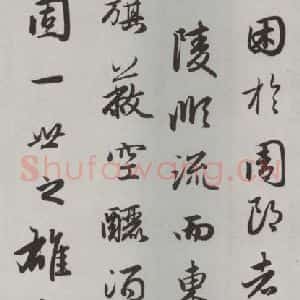 困於周郎者
陵順流而東
旗蔽空釃酒
固一世之雄
Shufawang.Cn